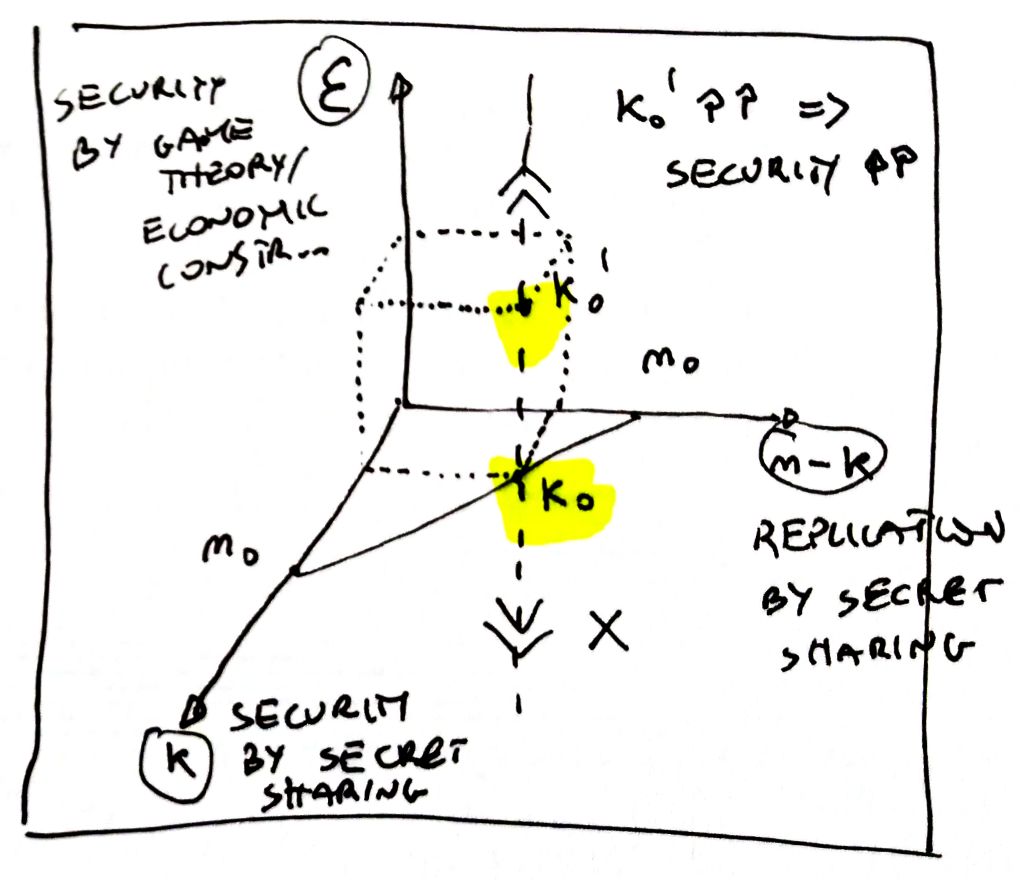 SECURITY
BY GAME
THEORY/
ECONOMIC
CONSTR...
Ɛ
K₀' ⇑⇑ =>
SECURITY ⇑⇑
K₀'
m₀
K₀
m - k
REPLICATION
BY SECRET
SHARING
m₀
X
K
SECURITY
BY SECRET
SHARING